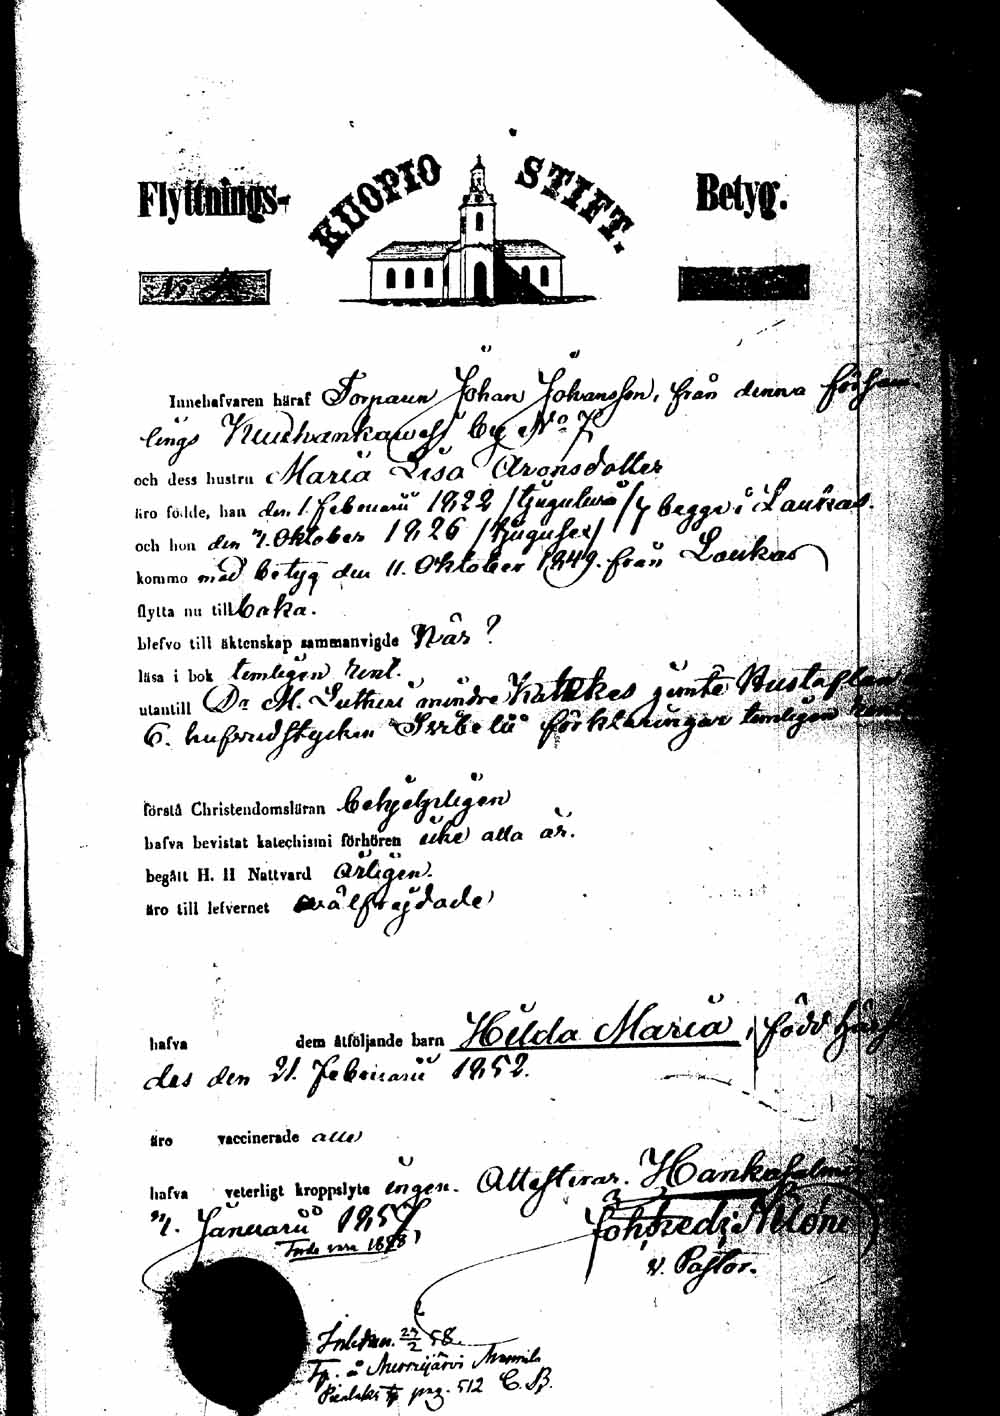 Flyttnings- KUOPIO STIFT. Betyg.
No
Innehafvaren häraf Torparen Johan Johansson, från denna försam-
lings by No 7
och dess hustru Maria Lisa Aronsdotter
äro födde, han den 1. Februarii 1822 /tjugutvå/ begge i Laukas.
och hon den 7. Oktober 1826 /tjugusex/
kommo med betyg den 11. Oktober 1849. från Laukas
flytta nu tillbaka.
blefvo till äktenskap sammanvigde När?
läsa i bok temligen rent.
utantill Dr M. Lutheri mindre Katekes jemte Hustaflan
6. hufvudstycken Svebelii förklaringar temligen
förstå Christendomsläran behjelpligen
hafva bevistat katechismi förhören icke alla år.
begått H. H Nattvard årligen.
äro till lefvernet välfrejdade
hafva dem åtföljande barn Hilda Maria, född här
des den 21. Februarii 1852.
äro vaccinerade alla
hafva veterligt kroppslyte ingen. Attesterar. Hankasalmi
7. Januarii 1857
Torde vara 1858
v. Pastor.
Inleman. 27/2 58.
Tp. å
pag. 512 C. B.